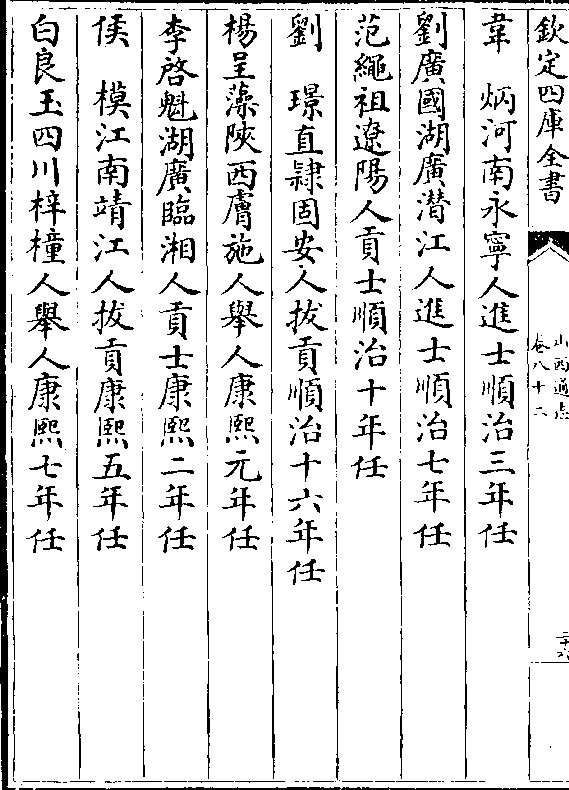 欽定四庫全書
山西通志
卷八十二
二十六
韋　炳河南永寧人進士順治三年任
劉廣國湖廣潛江人進士順治七年任
范繩祖遼陽人貢士順治十年任
劉　璟直隸固安人拔貢順治十六年任
楊呈藻陜西膚施人舉人康熙元年任
李啓魁湖廣臨湘人貢士康熙二年任
侯　模江南靖江人拔貢康熙五年任
白良玉四川梓橦人舉人康熙七年任